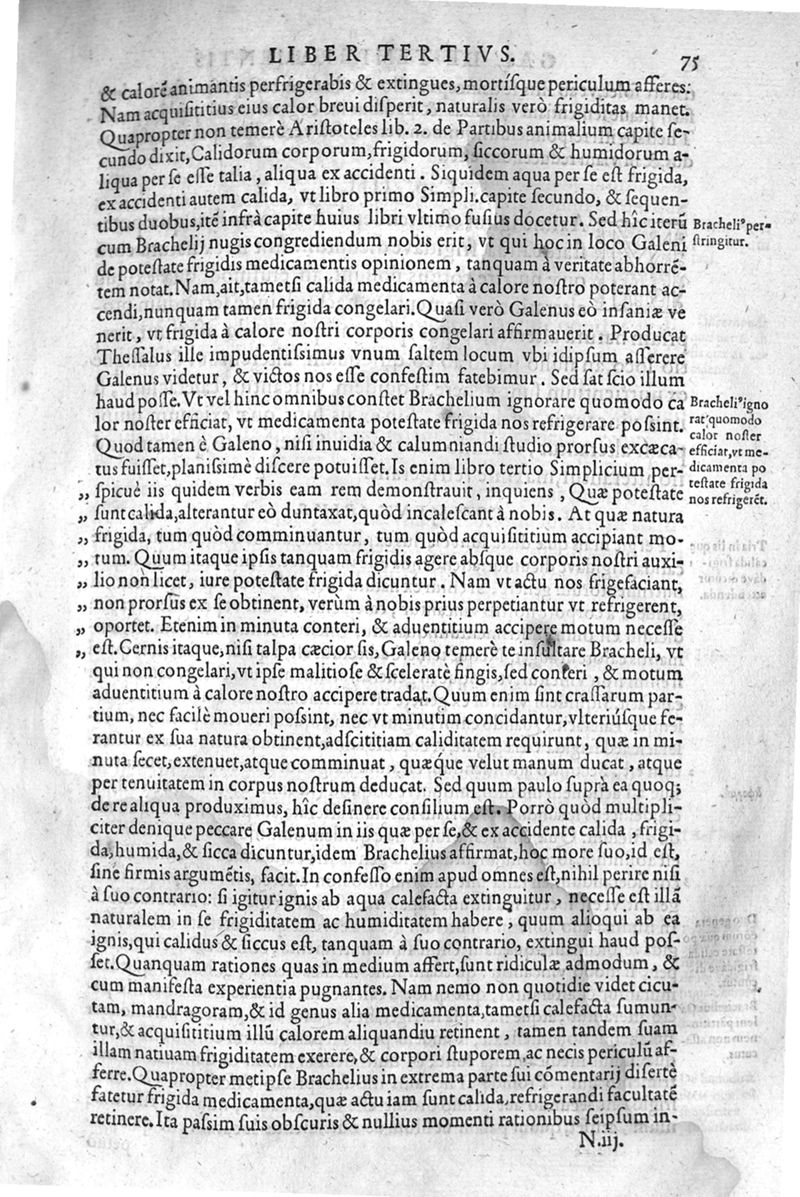 LIBER TERTIVS.
75
& calorē animantis perfrigerabis & extingues, mortíſque periculum afferes:
Nam acquiſititius eius calor breui diſperit, naturalis verò frigiditas manet.
Quapropter non temerè Ariſtoteles lib. 2. de Partibus animalium capite ſe-
cundo dixit, Calidorum corporum, frigidorum, ſiccorum & humidorum a-
liqua per ſe eſſe talia, aliqua ex accidenti. Siquidem aqua per ſe eſt frigida,
ex accidenti autem calida, vt libro primo Simpli. capite ſecundo, & ſequen-
tibus duobus, itē infrà capite huius libri vltimo fuſius docetur. Sed hîc iterū
cum Brachelij nugis congrediendum nobis erit, vt qui hoc in loco Galeni
de poteſtate frigidis medicamentis opinionem, tanquam à veritate abhorrē-
tem notat. Nam, ait, tametſi calida medicamenta à calore noſtro poterant ac-
cendi, nunquam tamen frigida congelari. Quaſi verò Galenus eò inſaniæ ve
nerit, vt frigida à calore noſtri corporis congelari affirmauerit. Producat
Theſſalus ille impudentiſsimus vnum ſaltem locum vbi idipſum aſſerere
Galenus videtur, & victos nos eſſe confeſtim fatebimur. Sed ſat ſcio illum
haud poſſe. Vt vel hinc omnibus conſtet Brachelium ignorare quomodo ca
lor noſter efficiat, vt medicamenta poteſtate frigida nos refrigerare poſsint.
Quod tamen è Galeno, niſi inuidia & calumniandi ſtudio prorſus excæca-
tus fuiſſet, planiſsimè diſcere potuiſſet. Is enim libro tertio Simplicium per-
ſpicuè iis quidem verbis eam rem demonſtrauit, inquiens, Quæ poteſtate
ſunt calida, alterantur eò duntaxat, quòd incaleſcant à nobis. At quæ natura
frigida, tum quòd comminuantur, tum quòd acquiſititium accipiant mo-
tum. Quum itaque ipſis tanquam frigidis agere abſque corporis noſtri auxi-
lio non licet, iure poteſtate frigida dicuntur. Nam vt actu nos frigefaciant,
non prorſus ex ſe obtinent, verùm à nobis prius perpetiantur vt refrigerent,
oportet. Etenim in minuta conteri, & aduentitium accipere motum neceſſe
eſt. Cernis itaque, niſi talpa cæcior ſis, Galeno temerè te inſultare Bracheli, vt
qui non congelari, vt ipſe malitioſe & ſceleratè fingis, ſed conteri, & motum
aduentitium à calore noſtro accipere tradat. Quum enim ſint craſſarum par-
tium, nec facilè moueri poſsint, nec vt minutim concidantur, vlteriúſque fe-
rantur ex ſua natura obtinent, adſcititiam caliditatem requirunt, quæ in mi-
nuta ſecet, extenuet, atque comminuat, quæque velut manum ducat, atque
per tenuitatem in corpus noſtrum deducat. Sed quum paulo ſuprà ea quoq;
de re aliqua produximus, hîc deſinere conſilium eſt. Porrò quòd multipli-
citer denique peccare Galenum in iis quæ per ſe, & ex accidente calida, frigi-
da, humida, & ſicca dicuntur, idem Brachelius affirmat, hoc more ſuo, id eſt,
ſine firmis argumētis, facit. In confeſſo enim apud omnes eſt, nihil perire niſi
à ſuo contrario: ſi igitur ignis ab aqua calefacta extinguitur, neceſſe eſt illā
naturalem in ſe frigiditatem ac humiditatem habere, quum alioqui ab ea
ignis, qui calidus & ſiccus eſt, tanquam à ſuo contrario, extingui haud poſ-
ſet. Quanquam rationes quas in medium affert, ſunt ridiculæ admodum, &
cum manifeſta experientia pugnantes. Nam nemo non quotidie videt cicu-
tam, mandragoram, & id genus alia medicamenta, tametſi calefacta ſumun-
tur, & acquiſititium illū calorem aliquandiu retinent, tamen tandem ſuam
illam natiuam frigiditatem exerere, & corpori ſtuporem, ac necis periculū af-
ferre. Quapropter metipſe Brachelius in extrema parte ſui cōmentarij diſertè
fatetur frigida medicamenta, quæ actu iam ſunt calida, refrigerandi facultatē
retinere. Ita paſsim ſuis obſcuris & nullius momenti rationibus ſeipſum in-
N.iij.
Bracheliꝰ per-
ſtringitur.
Bracheliꝰ igno
rat quomodo
calor noſter
efficiat, vt me-
dicamenta po
teſtate frigida
nos refrigerēt.
„
„
„
„
„
„
„
„